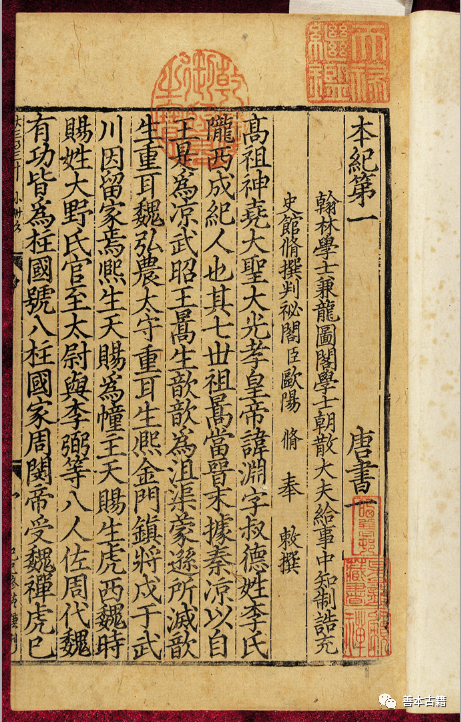 天祿繼鑑
乾隆御覽之寶
本紀第一 唐書一
翰林學士兼龍圖閣學士朝散大夫給事中知制誥充
史館脩撰判祕閣臣歐陽 脩 奉 敕撰
高祖神堯大聖大光孝皇帝諱淵字叔德姓李氏
隴西成紀人也其七丗祖暠當晉末據秦涼以自
王是為涼武昭王暠生歆歆為沮渠蒙遜所滅歆
生重耳魏弘農太守重耳生熈金門鎮將戍于武
川因留家焉熈生天賜為幢主天賜生虎西魏時
賜姓大野氏官至太尉與李弼等八人佐周代魏
有功皆為柱國號八柱國家周閔帝受魏禪虎已
善本古籍